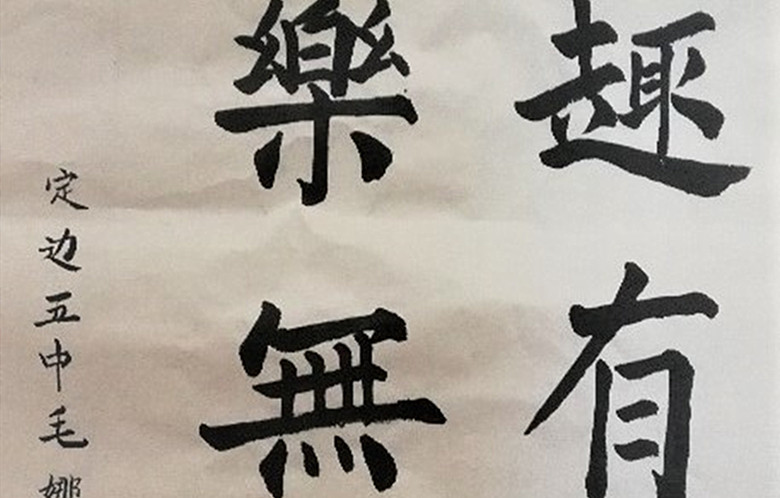 趣有
樂無
定边五中毛娜